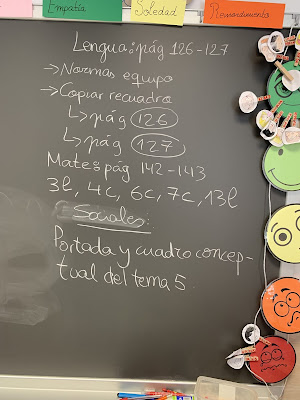 Empatía
Soledad
Remordimiento
Lengua: pág 126-127
→Normas equipo
→Copiar recuadro
↳pág 126
↳pág 127
Mates: pág 142-143
3l, 4c, 6c, 7c, 13l
Sociales:
Portada y cuadro concep-
tual del tema 5.